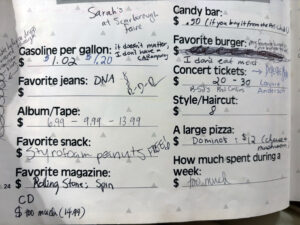 Sarah's
at Scarborough
Faire
Gasoline per gallon: it doesn't matter,
$ 1.02 $1.20 I don't have a
car anyway
Favorite jeans: DNA
$
Album/Tape:
$ 6.99 - 9.99 - 13.99
Favorite snack:
$ Styrofoam peanuts FREE!
Favorite magazine:
$ Rolling Stone; Spin
24
CD
$ too much (14.99)
Candy bar:
$ .50 (if you buy it from the
Favorite burger:
$
I don't eat meat
Concert tickets:
$ 20 - 30
Laurie
Anderson
Style/Haircut:
$ 8
A large pizza:
$ Dominos - $12 (cheese &
mushroom
How much spent during a
week:
$ too much